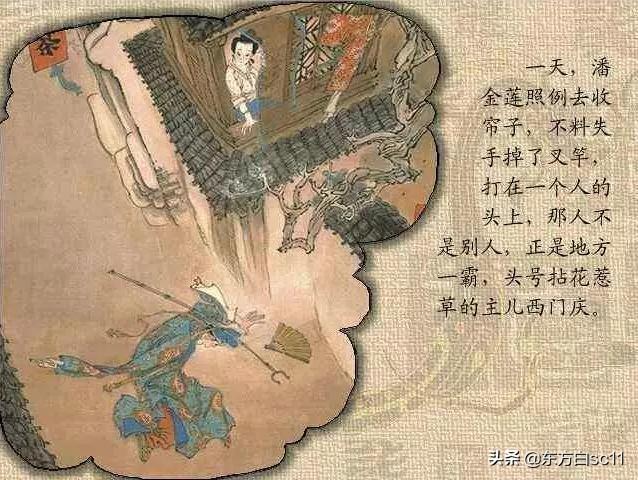 茶
一天，潘
金莲照例去收
帘子，不料失
手掉了叉竿，
打在一个人的
头上，那人不
是别人，正是地方
一霸，头号拈花惹
草的主儿西门庆。
头条 @东方白sc11